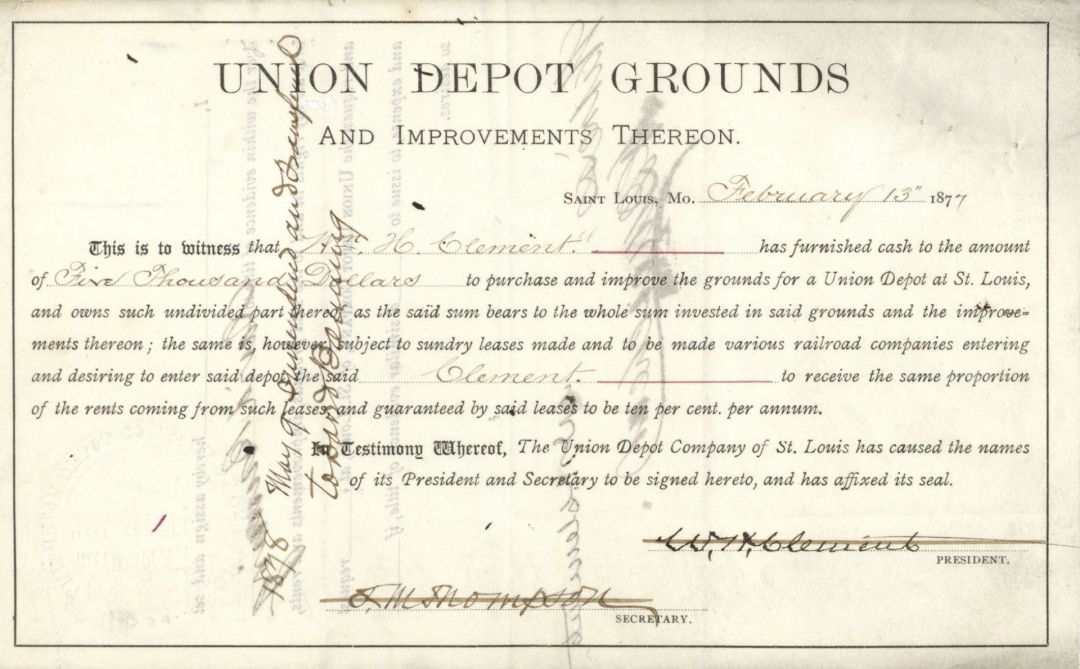 UNION DEPOT GROUNDS
AND IMPROVEMENTS THEREON.
SAINT LOUIS, MO. February 13" 1877
This is to witness that Wm. H. Clement. has furnished cash to the amount
of Five Thousand Dollars to purchase and improve the grounds for a Union Depot at St. Louis,
and owns such undivided part thereof as the said sum bears to the whole sum invested in said grounds and the improve-
ments thereon; the same is, however, subject to sundry leases made and to be made various railroad companies entering
and desiring to enter said depot, the said Clement. to receive the same proportion
of the rents coming from such leases, and guaranteed by said leases to be ten per cent. per annum.
In Testimony Whereof, The Union Depot Company of St. Louis has caused the names
of its President and Secretary to be signed hereto, and has affixed its seal.
W. H. Clement
PRESIDENT.
S M Thompson
SECRETARY.
1878 May 9 Surrendered and transferred
to